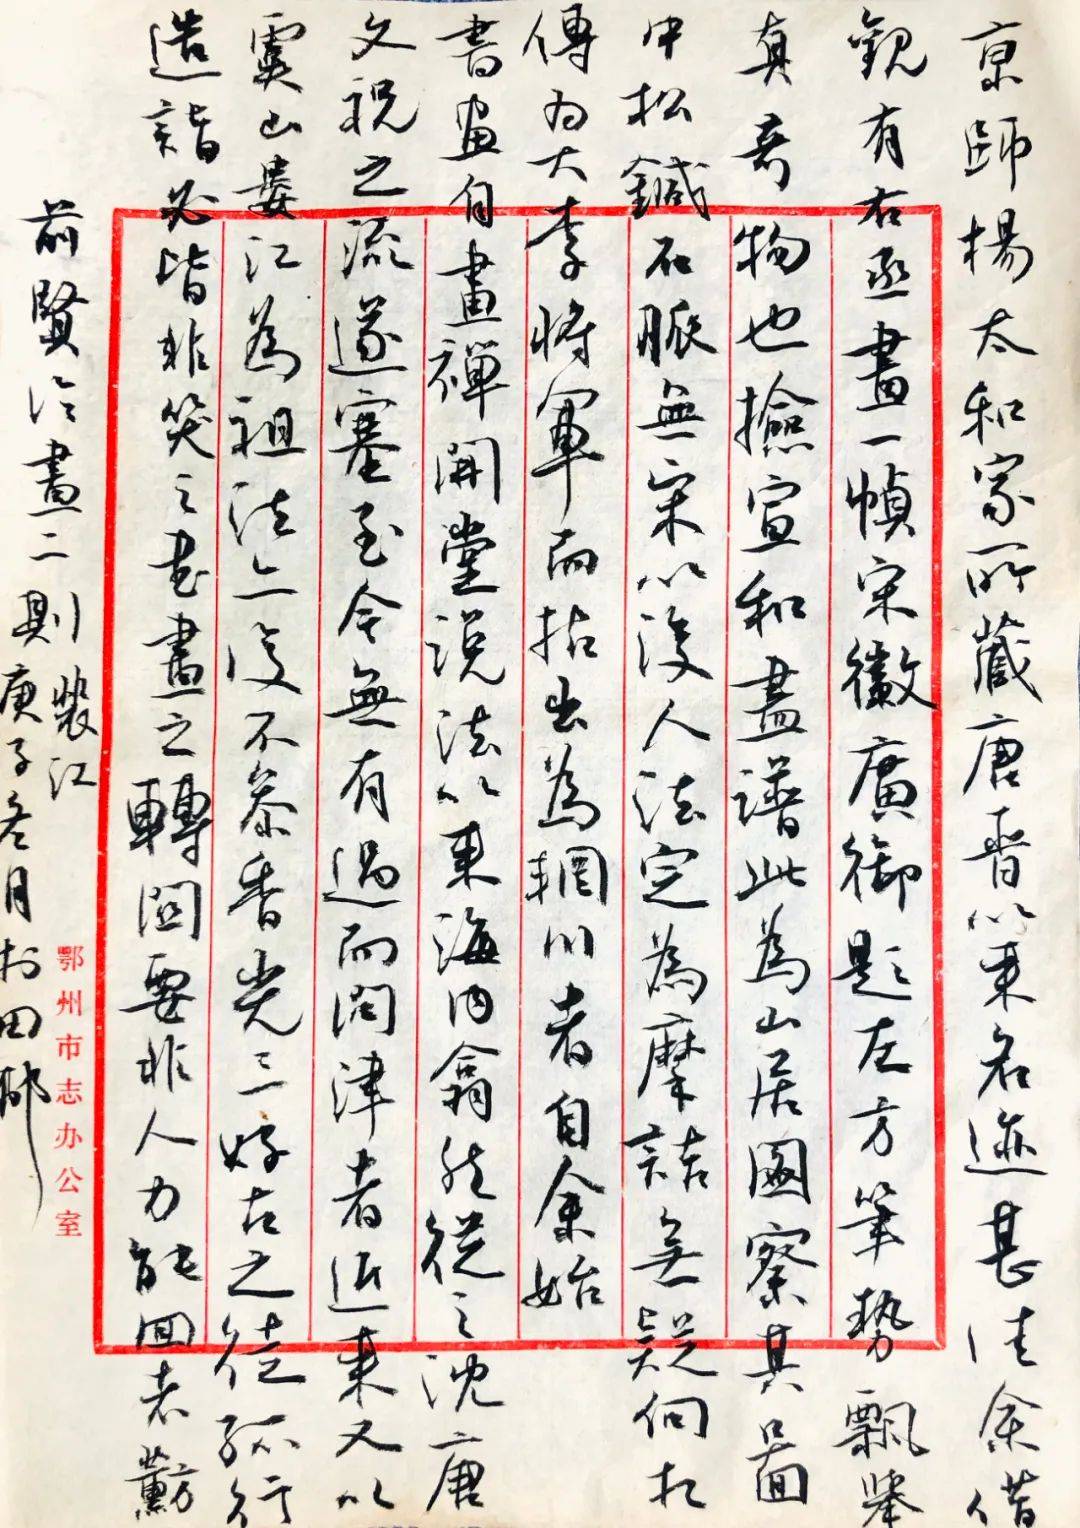 京師楊太和家所藏唐晉以来名迹甚佳余借
觀有右丞畫一幀宋徽廟御題左方筆勢飄舉
真奇物也撿宣和畫譜此為山居圖察其畐
中松鍼石脈無宋以後人法定為摩詰無疑向相
傳为大李將軍而拈出為輞川者自余始
書畫自畫禪開堂説法以来海内翕然從之沈唐
文祝之流遂塞至今無有過而問津者近来又以
虞山婁江為祖法亦復不参香光三好古之徒孤行
造詣必皆非笑之书畫之轉関要非人力能回者蕙方
前賢论畫二則裴江
庚子冬月於田邨
鄂州市志办公室